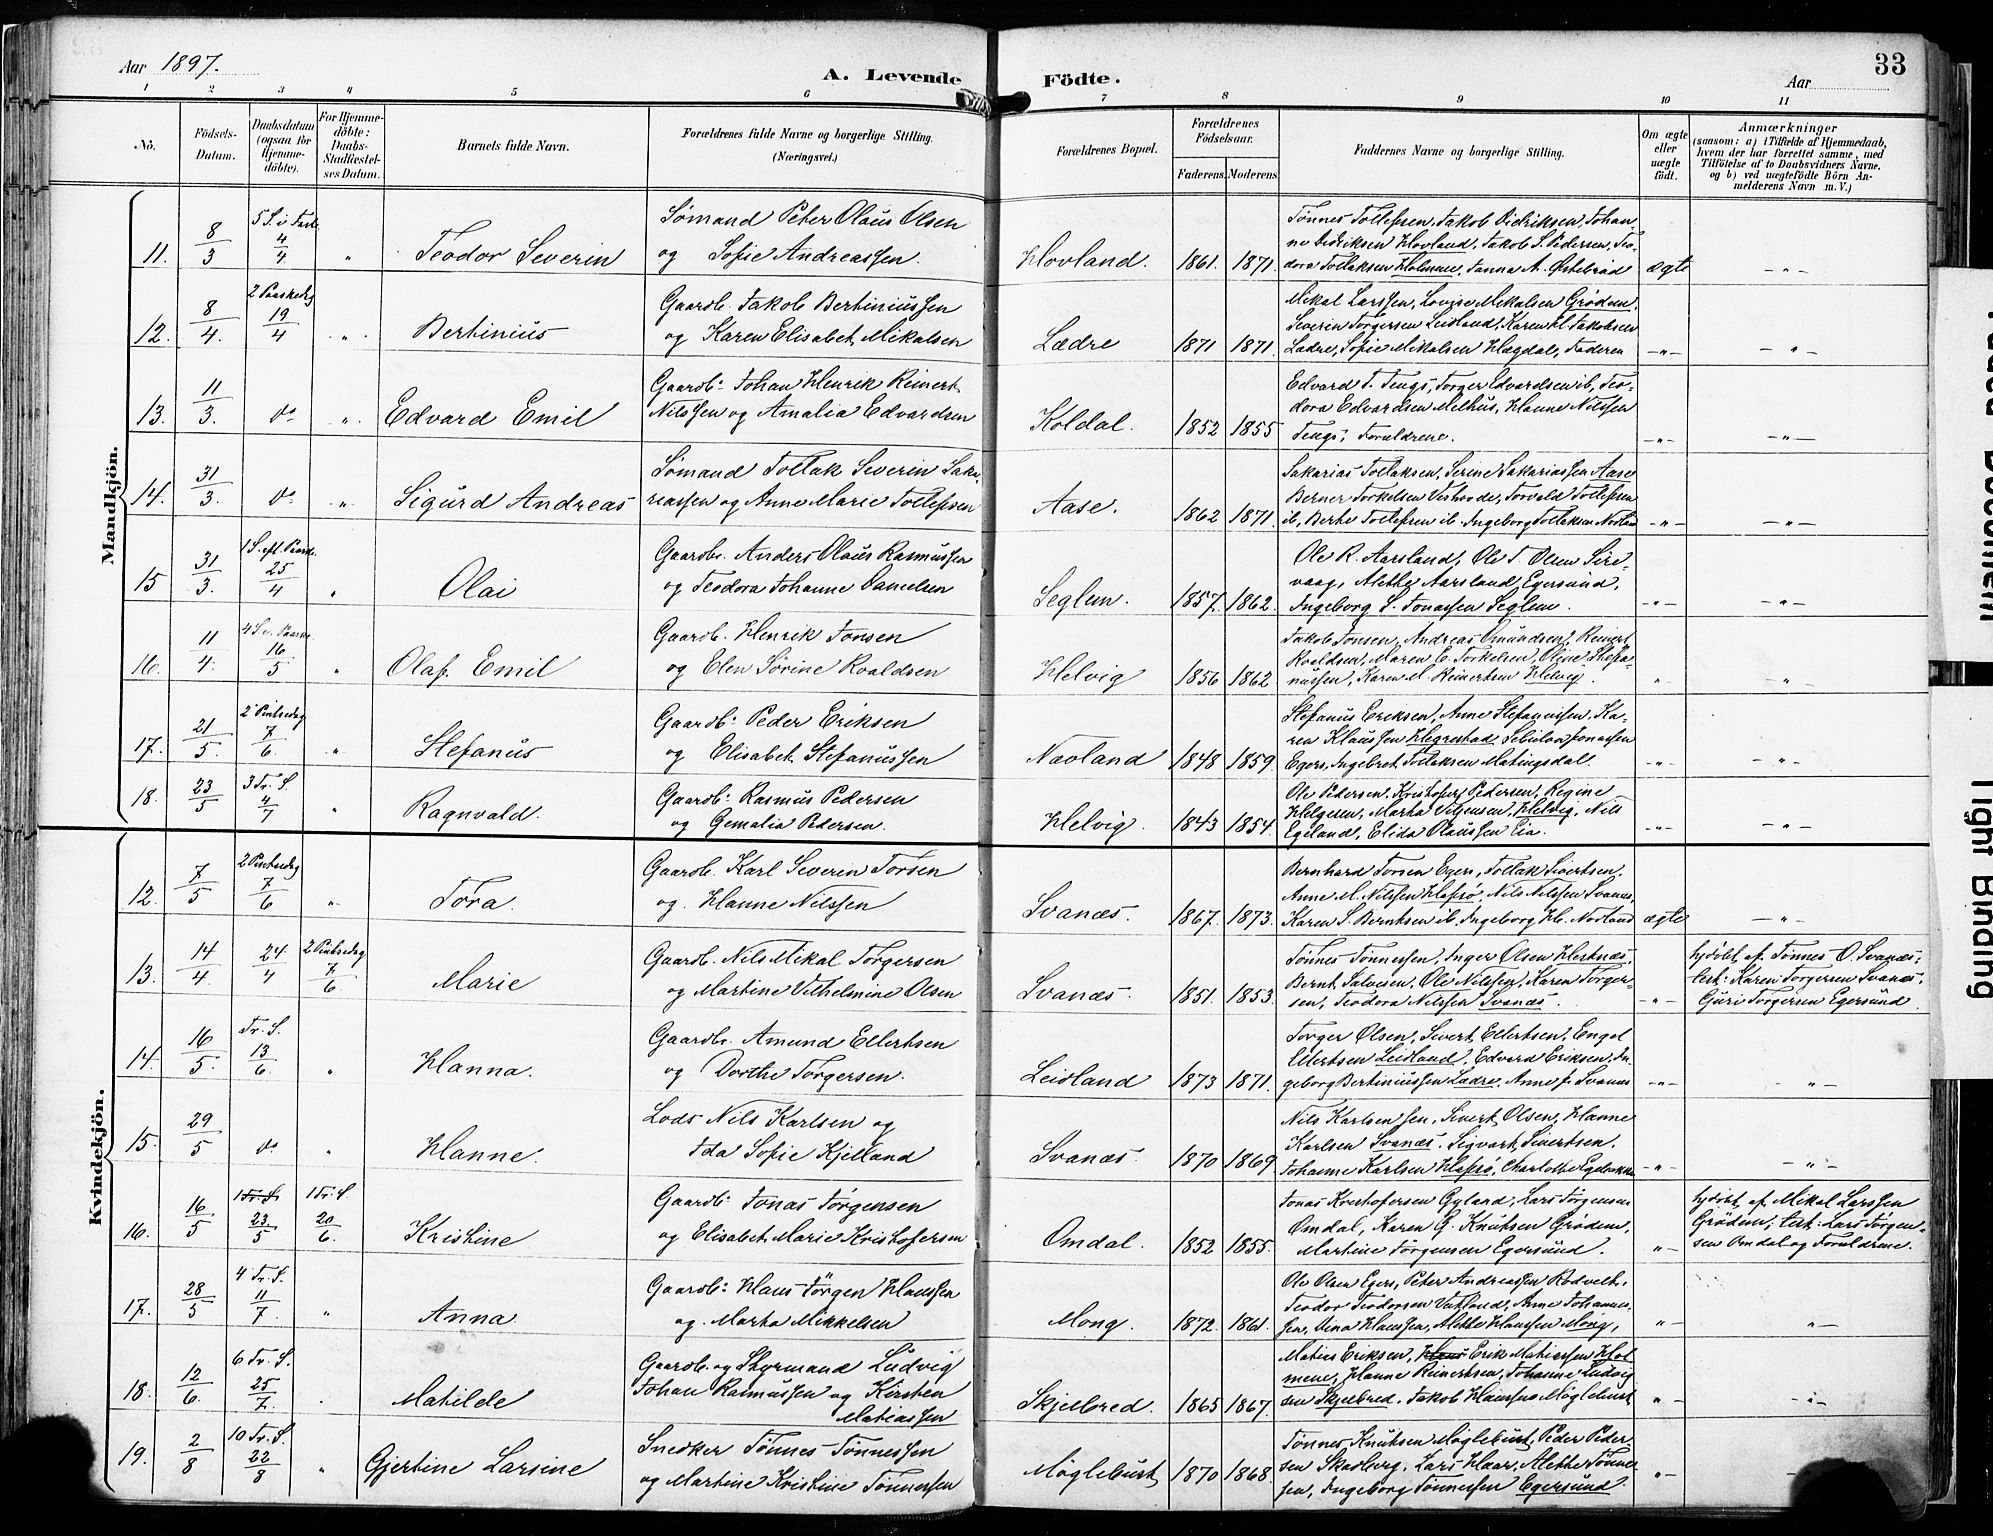 Aar 1897.
A. Levende Födte.
Aar
33
1 2 3 4 5 6 7 8 9 10 11
No.
Födsels-
Datum.
Daabsdatum
(ogsaa for
Hjemme-
döbte).
For Hjemme-
döbte:
Daabs-
Stadfæstel-
ses Datum.
Barnets fulde Navn.
Forældrenes fulde Navne og borgerlige Stilling.
(Næringsvei.)
Forældrenes Bopæl.
Forældrenes
Födselsaar.
Faderens. Moderens.
Faddernes Navne og borgerlige Stilling.
Om ægte
eller
uægte
födt.
Anmærkninger
(saasom: a) i Tilfælde af Hjemmedaab,
hvem der har forrettet samme, med
Tilföielse af to Daabsvidners Navne.
og b) ved uægtefödte Börn An-
melderens Navn m. V.)
Mandkjön.
11. 8/3 4/4 " Teodor Severin
Sømand Peter Olaus Olsen
og Sofie Andreassen.
Hovland. 1861. 1871.
Tønnes Tollefsen, Jakob Didriksen, Johan-
ne Didriksen Hovland, Jakob S. Pedersen, Teo-
dora Tollaksen Holmene, Tanna A. Østebrød
ægte - " -
12. 8/4. 2 Paaskedg 19/4 " Bertinius
Gaardb. Jakob Bertiniussen
og Karen Elisabet Mikalsen
Lædre 1871 1871.
Mikal Larssen, Lovise Mikalsen Grødem,
Severin Torgersen Leidland, Karen H. Jakobsen
Lædre, Sofie Mikalsen Hægdal, Faderen
- " - - " -
13. 11/3. do " Edvard Emil
Gaardb. Johan Henrik Reinert
Nilssen og Amalia Edvardsen
Koldal. 1852 1855
Edvard T. Tengs, Torger Edvardsen ib, Teo-
dora Edvardsen Melhus, Hanne Nilssen
Tengs, Forældrene.
- " - - " -
14. 31/3. do " Sigurd Andreas
Sømand Tollak Severin Saka-
riassen og Anne Marie Tollefsen
Aase. 1862 1871
Sakarias Tollaksen, Serine Sakariassen Aase
Berner Torkelsen, Torvald Tollefsen
ib, Berte Tollefsen ib. Ingeborg Tollaksen
- " - - " -
15 31/3. 1 S. eft. Paaske. 25/4 " Olai
Gaardbr. Anders Olaus Rasmussen
og Teodora Johanne Danielsen
Seglem. 1857. 1862.
Ole R. Aarsland, Ole T. Olsen Sire-
vaag, Alethe Aarsland, Egersund,
Ingeborg S. Jonassen Seglem.
- " - - " -
16. 11/4. 16/5 " Olaf Emil
Gaardb. Henrik Jonsen
og Elen Sørine Roaldsen
Helvig 1856 1862
Jakob Jonsen, Andreas Omundsen, Reinert
Roaldsen, Maren E. Torkelsen, Oline Stefa-
nussen, Karen M. Reinertsen Helvig.
" - " -
17. 21/5. 2 Pintsedag 7/6. " Stefanus
Gaardb: Peder Eriksen
og Elisabet Stefanussen
Nævland 1848 1859.
Stefanus Eriksen, Anne Stefanussen, Ka-
ren Klaussen Hegrestad, Jonassen
Eger, Ingebret Tollaksen Matingsdal.
- " - - " -
18. 23/5 3 Tr. S. 4/7 " Ragnvald.
Gaardb: Rasmus Pedersen
og Gemalia Pedersen.
Helvig. 1843 1854.
Ole Pedersen, Kristofer Pedersen, Regine
Helgesen, Marta Helvig, Nils
Egeland, Elida Olaussen Eia.
- " - - " -
Kvindekjön.
12. 7/5 2 Pintsedag 7/6 " Tora.
Gaardb. Karl Severin Torsen
og Hanne Nilssen
Svanæs. 1867. 1873.
Bernhard Torsen Eger, Tollak Sivertsen,
Anne M. Nilssen Hafsø, Nils Nilssen Svanæs,
Karen S. Berntsen ib, Ingeborg H. Nodland
ægte - " -
13. 14/4. 24/4 2 Pintsedag 7/6. Marie
Gaardb. Nils Mikal Torgersen
og Martine Vilhelmine Olsen
Svanæs. 1851. 1853.
Tønnes Tønnessen, Inger Olsen Hestnæs,
Bernt Salvesen, Ole Nilssen, Karen Torger-
sen, Teodora Nilssen Svanæs.
- " -
hjdøbt af Tønnes O. Svanæs,
test: Karen Torgersen Svanæs.
Guri Torgersen Egersund
14. 16/5. Tr. S. 13/6. " Hanna.
Gaardbr. Amund Ellertsen
og Dorthe Torgersen.
Leidland 1873 1871.
Torger Olsen, Sivert Ellertsen, Engel
Ellertsen Leidland, Edvard Eriksen, In-
geborg Bertiniussen Lædre, Anne Svanæs
- " - " -
15. 29/5 do " Hanne.
Lods Nils Karlsen og
Ida Sofie Kjelland
Svanæs. 1870 1869.
Nils Karlsen sen., Sivert Olsen, Hanne
Karlsen Svanæs. Sigvart Sivertsen,
Johanne Karlsen Hafsø, Charlotte
- " - - " -
16. 16/5 1 Tr. S. 23/5 1 Tr. S. 20/6. Kristine
Gaardb: Jonas Jørgensen
og Elisabet Marie Kristofersen
Omdal. 1852 1855.
Jonas Kristofersen Gyland, Lars Jørgensen
Omdal, Karen G. Knutsen Grødem,
Martine Jørgensen Egersund.
" -
hjdøbt af Mikal Larssen
Grødem; test: Lars Jørgen-
sen Omdal og Forældrene.
17. 28/5 4 Tr. S. 11/7. " Anna
Gaardb: Klaus Jørgen Klaussen
og Marta Mikkelsen
Mong. 1872. 1861.
Ole Olsen Eger, Peter Andreassen Rodvelt,
Teodor Teodorsen Vatland, Anne Johannes-
sen, Dina Klaussen, Alethe Klaussen Mong,
" - " -
18. 12/6. 6 Tr. S. 25/7. Matilde
Gaardb. og Styrmand Ludvig
Johan Rasmussen og Kirsten
Matiassen
Skjelbred. 1865 1867.
Matias Eriksen, Erik Matiassen Hol-
mene, Hanne Reinertsen, Johanne Ludvig-
sen Skjelbred, Jakob Klaussen Møglebust
" - " -
19. 2/8 10 Tr. S. 22/8 " Gjertine Larsine
Snedker Tønnes Tønnessen
og Martine Kristine Tønnessen
Møglebust 1870 1868.
Tønnes Knutsen Møglebust, Peder Peder-
sen Skadberg, Lars Haar, Alethe Tønnes-
sen, Ingeborg Tønnessen Egersund.
" -
Tight Binding